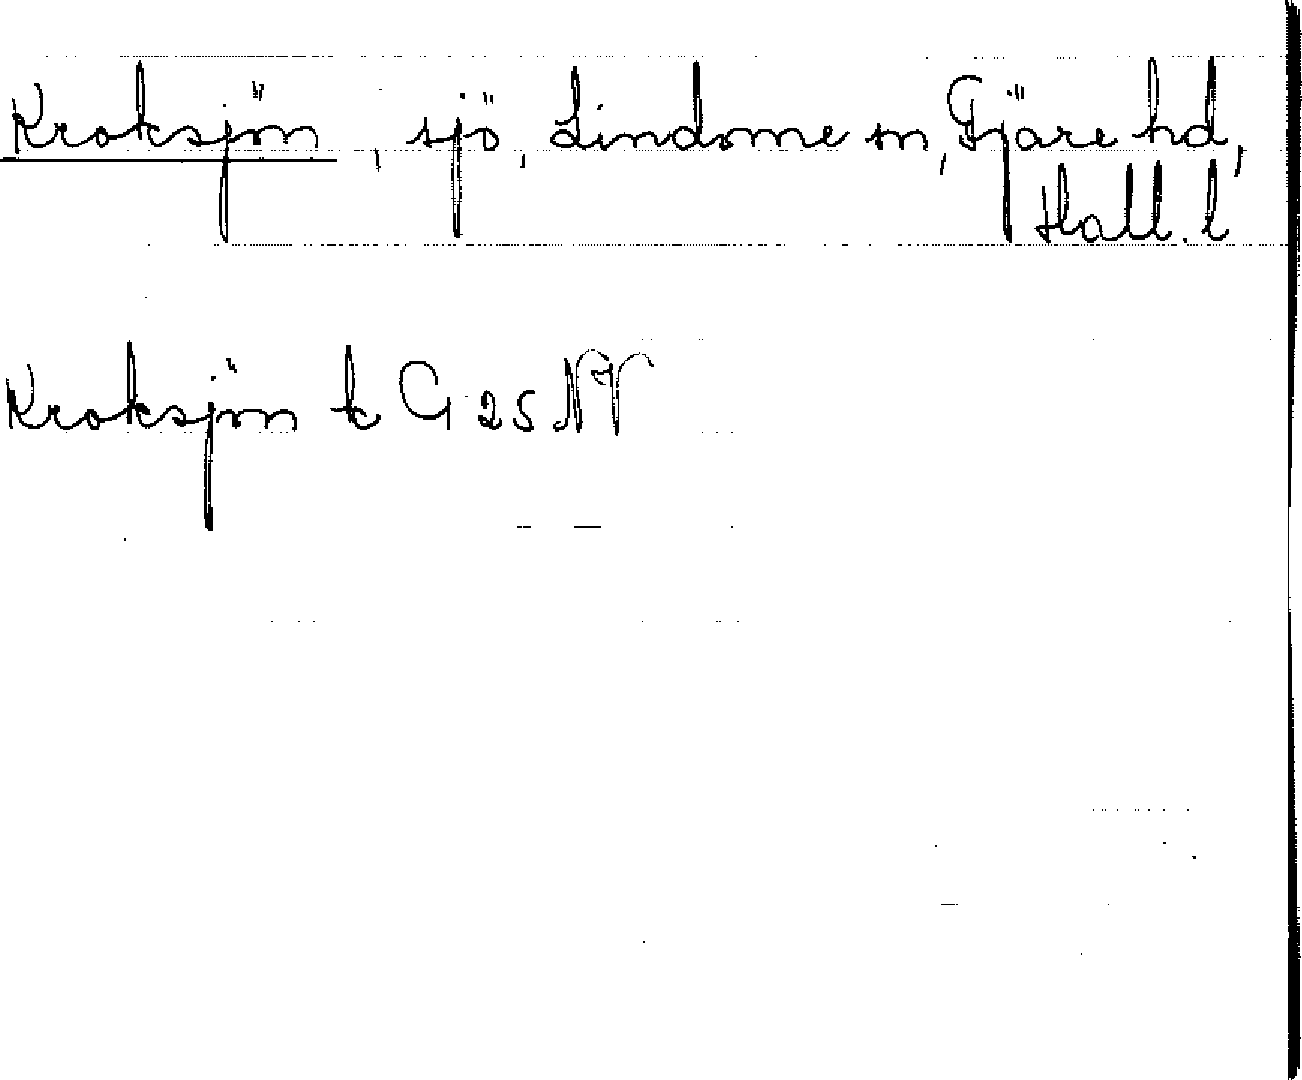 Kroksjön, sjö, Lindome sn, Fjäre hd,
Hall. l
Kroksjön k G 25 NV